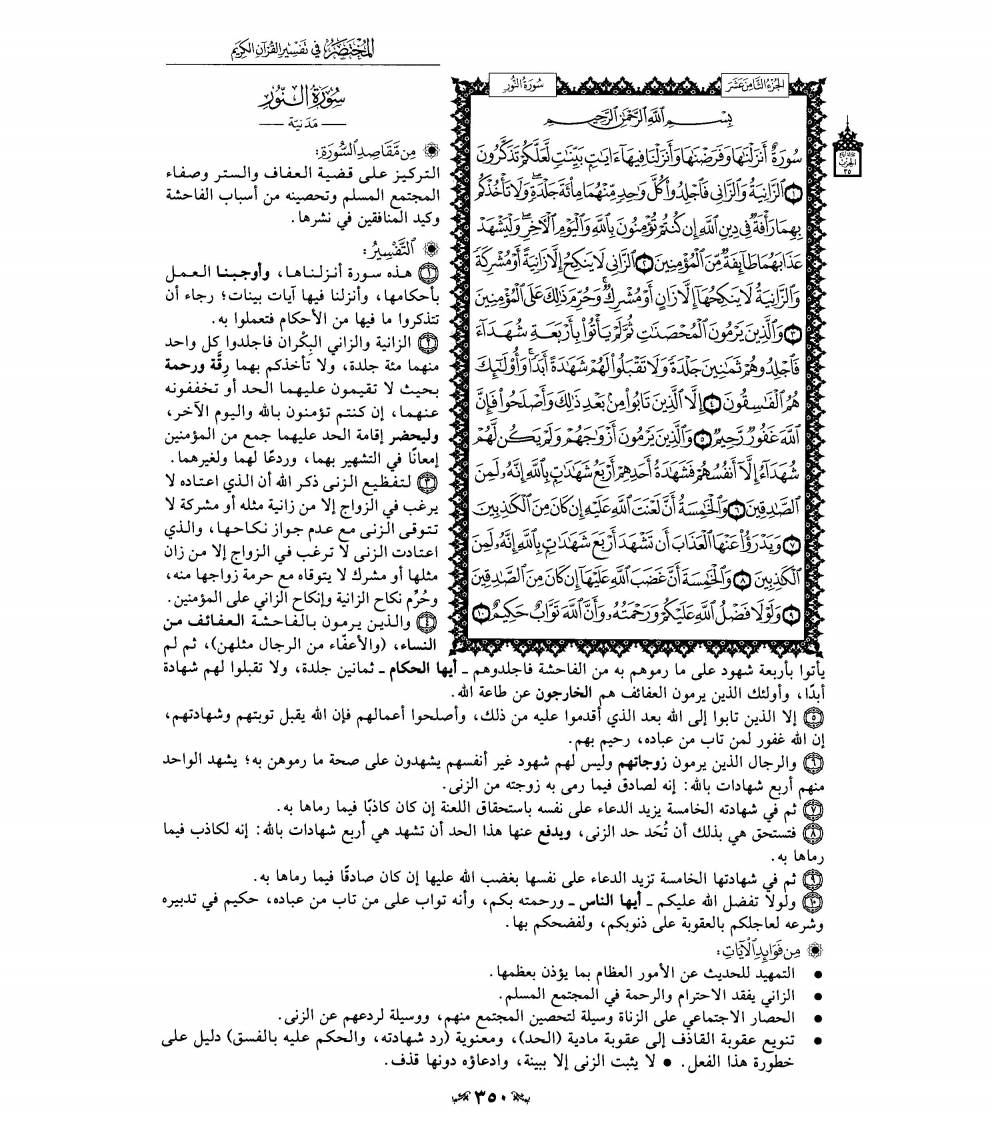 المختصر في تفسير القرآن الكريم
الجزء الثامن عشر
سورة النور
بِسْمِ اللَّهِ الرَّحْمَٰنِ الرَّحِيمِ
سُورَةٌ أَنزَلْنَٰهَا وَفَرَضْنَٰهَا وَأَنزَلْنَا فِيهَآ ءَايَٰتٍۭ بَيِّنَٰتٍ لَّعَلَّكُمْ تَذَكَّرُونَ
١ ٱلزَّانِيَةُ وَٱلزَّانِى فَٱجْلِدُوا۟ كُلَّ وَٰحِدٍ مِّنْهُمَا مِا۟ئَةَ جَلْدَةٍ وَلَا تَأْخُذْكُم
بِهِمَا رَأْفَةٌ فِى دِينِ ٱللَّهِ إِن كُنتُمْ تُؤْمِنُونَ بِٱللَّهِ وَٱلْيَوْمِ ٱلْءَاخِرِ وَلْيَشْهَدْ
عَذَابَهُمَا طَآئِفَةٌ مِّنَ ٱلْمُؤْمِنِينَ ٢ ٱلزَّانِى لَا يَنكِحُ إِلَّا زَانِيَةً أَوْ مُشْرِكَةً
وَٱلزَّانِيَةُ لَا يَنكِحُهَآ إِلَّا زَانٍ أَوْ مُشْرِكٌ وَحُرِّمَ ذَٰلِكَ عَلَى ٱلْمُؤْمِنِينَ
٣ وَٱلَّذِينَ يَرْمُونَ ٱلْمُحْصَنَٰتِ ثُمَّ لَمْ يَأْتُوا۟ بِأَرْبَعَةِ شُهَدَآءَ
فَٱجْلِدُوهُمْ ثَمَٰنِينَ جَلْدَةً وَلَا تَقْبَلُوا۟ لَهُمْ شَهَٰدَةً أَبَدًا وَأُو۟لَٰٓئِكَ
هُمُ ٱلْفَٰسِقُونَ ٤ إِلَّا ٱلَّذِينَ تَابُوا۟ مِنۢ بَعْدِ ذَٰلِكَ وَأَصْلَحُوا۟ فَإِنَّ
ٱللَّهَ غَفُورٌ رَّحِيمٌ ٥ وَٱلَّذِينَ يَرْمُونَ أَزْوَٰجَهُمْ وَلَمْ يَكُن لَّهُمْ
شُهَدَآءُ إِلَّآ أَنفُسُهُمْ فَشَهَٰدَةُ أَحَدِهِمْ أَرْبَعُ شَهَٰدَٰتٍۭ بِٱللَّهِ إِنَّهُۥ لَمِنَ
ٱلصَّٰدِقِينَ ٦ وَٱلْخَٰمِسَةُ أَنَّ لَعْنَتَ ٱللَّهِ عَلَيْهِ إِن كَانَ مِنَ ٱلْكَٰذِبِينَ
٧ وَيَدْرَؤُا۟ عَنْهَا ٱلْعَذَابَ أَن تَشْهَدَ أَرْبَعَ شَهَٰدَٰتٍۭ بِٱللَّهِ إِنَّهُۥ لَمِنَ
ٱلْكَٰذِبِينَ ٨ وَٱلْخَٰمِسَةَ أَنَّ غَضَبَ ٱللَّهِ عَلَيْهَآ إِن كَانَ مِنَ ٱلصَّٰدِقِينَ
٩ وَلَوْلَا فَضْلُ ٱللَّهِ عَلَيْكُمْ وَرَحْمَتُهُۥ وَأَنَّ ٱللَّهَ تَوَّابٌ حَكِيمٌ ١٠
الحزب
٣٥
سورة النور
— مدنية —
من مقاصد السورة:
التركيز على قضية العفاف والستر وصفاء
المجتمع المسلم وتحصينه من أسباب الفاحشة
وكيد المنافقين في نشرها.
التفسير:
١ هذه سورة أنزلناها، وأوجبنا العمل
بأحكامها، وأنزلنا فيها آيات بينات؛ رجاء أن
تتذكروا ما فيها من الأحكام فتعملوا به.
٢ الزانية والزاني البِكْران فاجلدوا كل واحد
منهما مئة جلدة، ولا تأخذكم بهما رِقَّة ورحمة
بحيث لا تقيمون عليهما الحد أو تخففونه
عنهما، إن كنتم تؤمنون بالله واليوم الآخر،
وليحضر إقامة الحد عليهما جمع من المؤمنين
إمعانًا في التشهير بهما، وردعًا لهما ولغيرهما.
٣ لتفظيع الزنى ذكر الله أن الذي اعتاده لا
يرغب في الزواج إلا من زانية مثله أو مشركة لا
تتوقى الزنى مع عدم جواز نكاحها، والذي
اعتادت الزنى لا ترغب في الزواج إلا من زان
مثلها أو مشرك لا يتوقاه مع حرمة زواجها منه،
وحُرِّم نكاح الزانية وإنكاح الزاني على المؤمنين.
٤ والذين يرمون بالفاحشة العفائف من
النساء، (والأعفّاء من الرجال مثلهن)، ثم لم
يأتوا بأربعة شهود على ما رموهم به من الفاحشة فاجلدوهم ـ أيها الحكام ـ ثمانين جلدة، ولا تقبلوا لهم شهادة
أبدًا، وأولئك الذين يرمون العفائف هم الخارجون عن طاعة الله.
٥ إلا الذين تابوا إلى الله بعد الذي أقدموا عليه من ذلك، وأصلحوا أعمالهم فإن الله يقبل توبتهم وشهادتهم،
إن الله غفور لمن تاب من عباده، رحيم بهم.
٦ والرجال الذين يرمون زوجاتهم وليس لهم شهود غير أنفسهم يشهدون على صحة ما رموهن به؛ يشهد الواحد
منهم أربع شهادات بالله: إنه لصادق فيما رمى به زوجته من الزنى.
٧ ثم في شهادته الخامسة يزيد الدعاء على نفسه باستحقاق اللعنة إن كان كاذبًا فيما رماها به.
٨ فتستحق هي بذلك أن تُحَد حد الزنى، ويدفع عنها هذا الحد أن تشهد هي أربع شهادات بالله: إنه لكاذب فيما
رماها به.
٩ ثم في شهادتها الخامسة تزيد الدعاء على نفسها بغضب الله عليها إن كان صادقًا فيما رماها به.
١٠ ولولا تفضل الله عليكم ـ أيها الناس ـ ورحمته بكم، وأنه تواب على من تاب من عباده، حكيم في تدبيره
وشرعه لعاجلكم بالعقوبة على ذنوبكم، ولفضحكم بها.
من فوائد الآيات:
• التمهيد للحديث عن الأمور العظام بما يؤذن بعظمها.
• الزاني يفقد الاحترام والرحمة في المجتمع المسلم.
• الحصار الاجتماعي على الزناة وسيلة لتحصين المجتمع منهم، ووسيلة لردعهم عن الزنى.
• تنويع عقوبة القاذف إلى عقوبة مادية (الحد)، ومعنوية (رد شهادته، والحكم عليه بالفسق) دليل على
خطورة هذا الفعل. • لا يثبت الزنى إلا ببينة، وادعاؤه دونها قذف.
٣٥٠